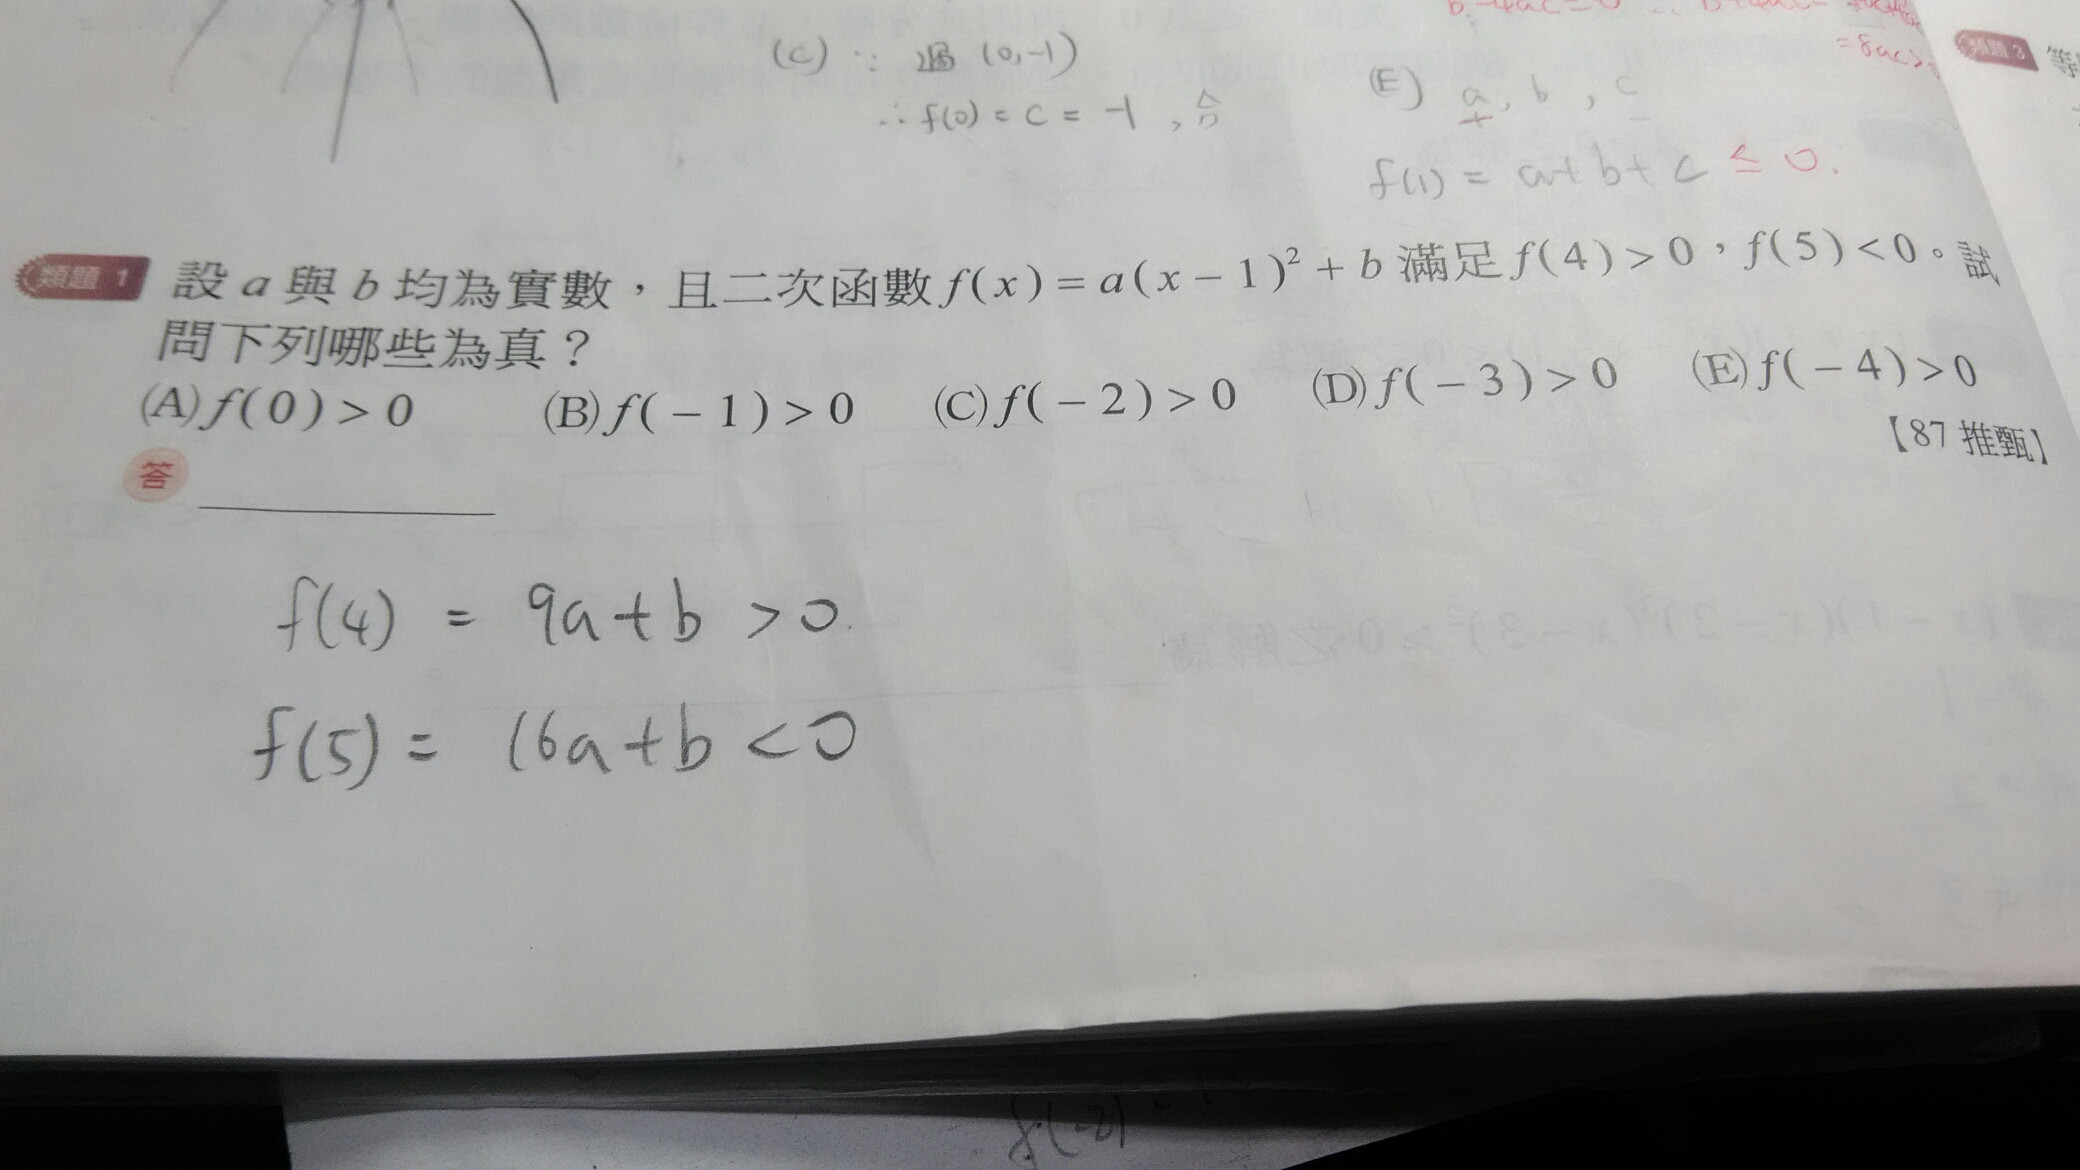 (C) ∵ 過 (0,-1)
∴ f(0) = c = -1 , 合
=8ac>
(E) a, b, c
+ -
f(1) = a+b+c ≤ 0.
類題 3 等
類題 1 設 a 與 b 均為實數，且二次函數 f(x) = a(x-1)² + b 滿足 f(4) > 0，f(5) < 0。試
問下列哪些為真？
(A) f(0) > 0 (B) f(-1) > 0 (C) f(-2) > 0 (D) f(-3) > 0 (E) f(-4) > 0
【87 推甄】
答
f(4) = 9a+b >0.
f(5) = 16a+b <0
f(-2)